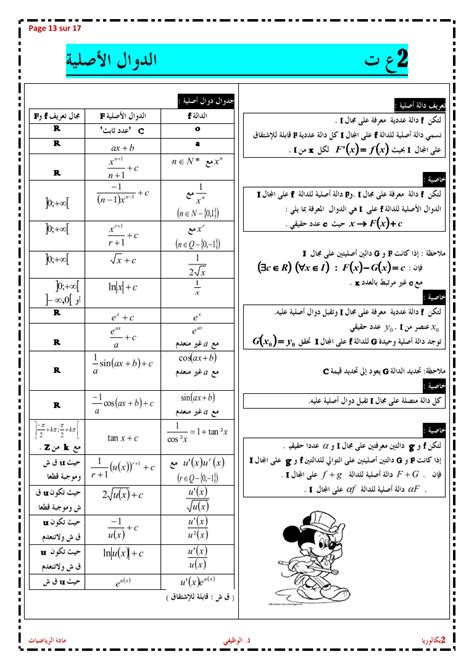 Page 13 sur 17
2ع ت
الدوال الأصلية
تعريف دالة أصلية :
لتكن f دالة عددية معرفة على مجال I .
نسمي دالة أصلية للدالة f على المجال I كل دالة عددية F قابلة للإشتقاق
على المجال I بحيث F'(x) = f(x) لكل x من I .
خاصية :
لتكن f دالة معرفة على مجال I . وF دالة أصلية للدالة f على المجال I
الدوال الأصلية للدالة f على I هي الدوال المعرفة بما يلي :
x → F(x)+c حيث c عدد حقيقي .
ملاحظة : إذا كانت F و G دالتين أصليتين على مجال I
فإن : (∃c∈R) (∀x∈I) : F(x)−G(x)=c
مع c غير مرتبط بالعدد x .
خاصية :
لتكن f دالة عددية معرفة على مجال I وتقبل دوال أصلية عليه.
x₀ عنصر من I . y₀ عدد حقيقي
توجد دالة أصلية وحيدة G للدالة f على المجال I تحقق G(x₀)=y₀
ملاحظة: تحديد الدالة G يعود إلى تحديد قيمة C
خاصية :
كل دالة متصلة على مجال I تقبل دوال أصلية عليه.
خاصية :
لتكن f و g دالتين معرفتين على مجال I و α عددا حقيقيا .
إذا كانت F و G دالتين أصليتين على التوالي للدالتين f و g على المجال I
فإن . F + G دالة أصلية للدالة f + g على المجال I .
. αF دالة أصلية للدالة αf على المجال I .
جدوال دوال أصلية :
الدالة f	الدوال الأصلية F	مجال تعريف f وF
0	C "عدد ثابت"	R
a	ax + b	R
xⁿ مع n ∈ N *	xⁿ⁺¹/(n+1) + c	R
1/xⁿ مع (n∈N−{0,1})	−1/((n−1)xⁿ⁻¹) + c	]0;+∞[
xʳ مع (r∈Q−{0,−1})	xʳ⁺¹/(r+1) + c	]0;+∞[
1/(2√x)	√x + c	]0;+∞[
1/x	ln|x| + c	]0;+∞[ أو ]−∞,0[
eₓ	eˣ + c	R
eᵃˣ مع a غير منعدم	eᵃˣ/a + c	R
cos(ax+b) مع a غير منعدم	1/a sin(ax+b)+c	R
sin(ax+b) مع a غير منعدم	−1/a cos(ax+b)+c	R
1/cos²x = 1 + tan²x	tan x + c	]−π/2+kπ;π/2+kπ[ مع k من Z .
u'(x)uʳ(x) مع (r∈Q−{0,−1})	1/(r+1) (u(x))ʳ⁺¹ + c	حيث u ق ش وموجبة قطعا
u'(x)/√u(x)	2√u(x) + c	حيث تكون u ق ش وموجبة قطعا
u'(x)/u²(x)	−1/u(x) + c	حيث تكون u ق ش ولاتنعدم
u'(x)/u(x)	ln|u(x)| + c	حيث تكون u ق ش ولاتنعدم
u'(x)eᵘ⁽ˣ⁾	eᵘ⁽ˣ⁾ + c	حيث u ق ش
( ق ش : قابلة للاشتقاق )
2بكالوريا
ذ. الوظيفي
مادة الرياضيات